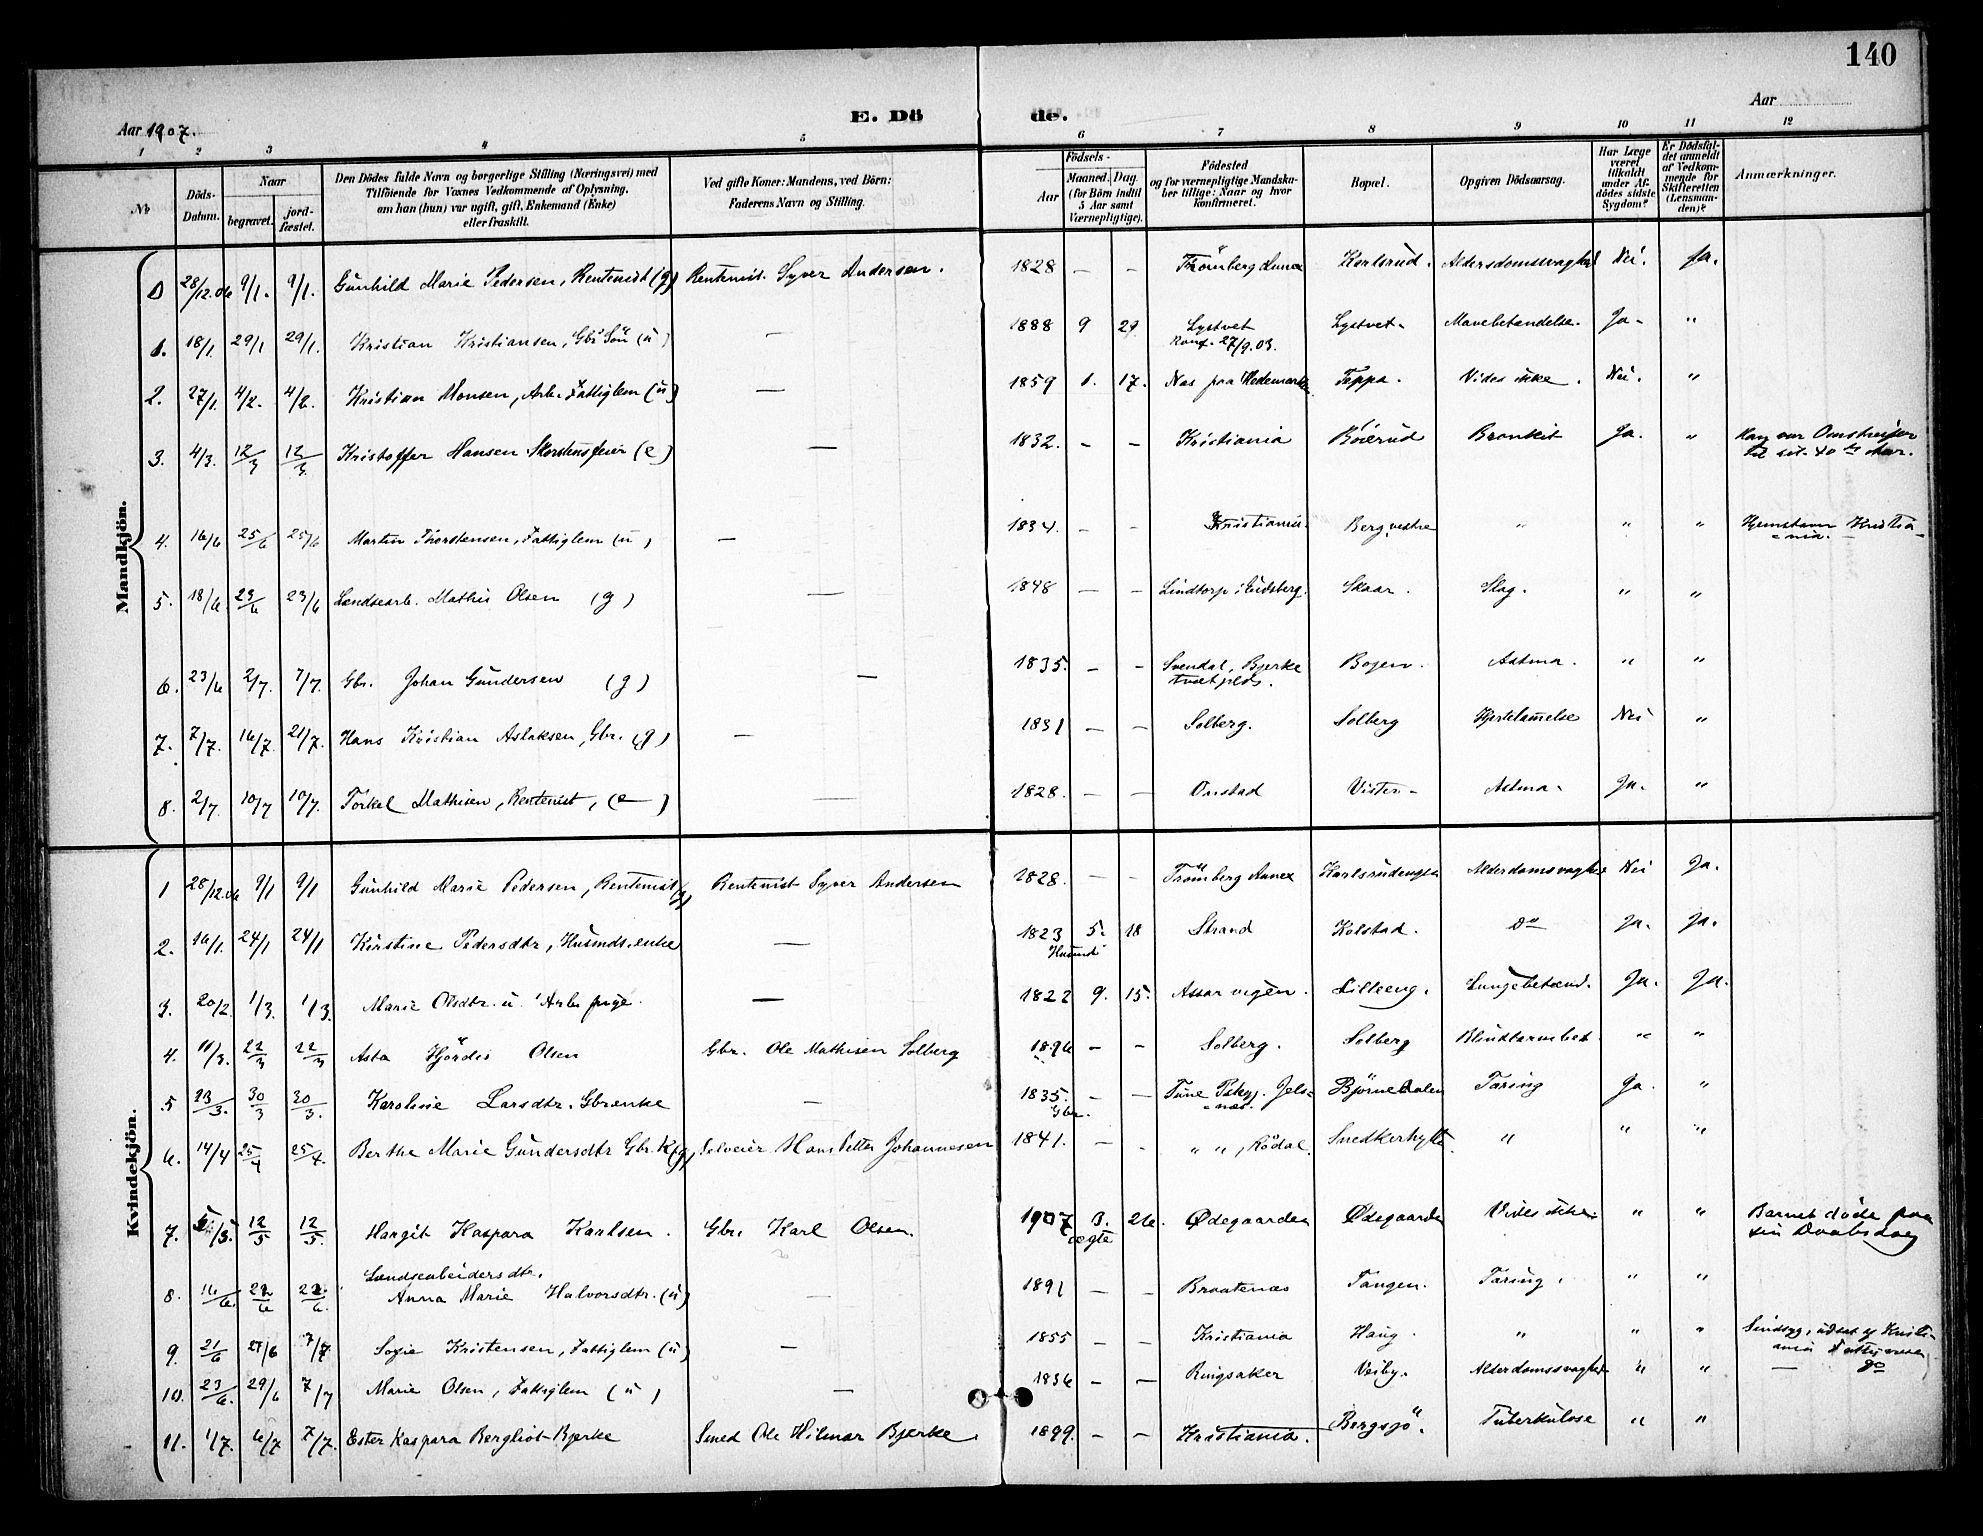 140
Aar 1907.
E. Dö de.
Aar
1 2 3 4 5 6 7 8 9 10 11 12
No
Döds-Datum.
Naar begravet. jordfæstet.
Den Dödes fulde Navn og borgerlige Stilling (Næringsvei) med Tilföiende for Voxnes Vedkommende af Oplysning, om han (hun) var ugift, gift, Enkemand (Enke) eller fraskilt.
Ved gifte Koner: Mandens, ved Börn: Faderens Navn og Stilling.
Födsels- Aar Maaned. Dag. (for Börn indtil 5 Aar samt Værnepligtige).
Födested og for værnepligtige Mandskaber tillige: Naar og hvor konfirmeret.
Bopæl.
Opgiven Dödsaarsag.
Har Læge været tilkaldt under Afdödes sidste Sygdom?
Er Dödsfaldet anmeldt af Vedkommende for Skifteretten (Lensmanden)?
Anmærkninger.
Mandkjön.
0 28/12.06 9/1. 9/1. Gunhild Marie Pedersen, Rentenist (g) Rentenist. Syver Andersen. 1828 — — Trömberg Annex Karlsrud. Aldersdomssvaghed Nei. Ja.
1. 18/1. 29/1 29/1. Kristian Kristiansen, Gbr Sön (u) — 1888 9 29 Lystvet Konf. 27/9.03. Lystvet. Mavebetændelse. Ja. "
2. 27/1. 4/2. 4/2. Kristian Monsen, Arb. Fattiglem (u) — 1859 1. 17. Nes paa Hedemarken Teppa. Vides ikke. Nei. "
3. 4/3. 12/3 12/3. Kristoffer Hansen Skorstensfeier (e) — 1832. — — Kristiania Böierud Bronkit Ja. " Han var Omstreifer til sit 40de Aar.
4. 16/6 25/6 25/6 Martin Thorstensen, Fattiglem (u) — 1834. — — Kristiania. Berg vestre " " " Hjemstavn Kristiania.
5. 18/6. 23/6 23/6 Landsearb. Mathis Olsen (g) — 1848 — — Lindtorp i Eidsberg. Skaar. Slag. " "
6. 23/6 2/7. 7/7. Gbr. Johan Gundersen (g) — 1835. — — Svendal, Bjerke Bogen. Astma. " "
7. 7/7. 16/7. 21/7. Hans Kristian Aslaksen, Gbr. (g) — 1831 — — Solberg. Solberg Hjertelamelse Nei "
8. 2/7. 10/7 10/7. Torkel Mathisen, Rentenist, (e) — 1828. — — Onstad Vister. Astma. Ja. "
Kvindekjön.
1 28/12.06 9/1 9/1 Gunhild Marie Pedersen, Rentenist (g) Rentenist Syver Andersen 1828. — — Trömberg Annex Karlsrudengen Alderdomssvaghed Nei Ja.
2. 16/1. 24/1 24/1 Kirstine Pedersdtr, Husmds.enke — 1823 5. 18 Husmd Strand Kolstad. Do Ja. Ja.
3. 20/2. 1/3. 1/3. Marie Olsdtr. u. Arb. pige. — 1822 9. 15. Assarvegen. Lilleeng. Lungebetænd. Ja. Ja.
4. 11/3. 22/3 22/3 Asta Hjördis Olsen Gbr. Ole Mathisen Solberg 1896 — — Solberg. Solberg Blindtarmbet. " "
5 23/3. 30/3 30/3. Karoline Larsdtr. Gbrenke — 1835. Gbr. — — Tune Pskgj. Jelsnæs. Björnedalen Tæring Ja. "
6. 14/4 25/4 25/4. Berthe Marie Gundersdtr Gbr. K (g) Selveier Hans Petter Johannesen 1841. — — " ", Rödal. Snedkerhytt. " " "
7. 5/5. 12/5 12/5. Margit Kaspara Karlsen. Gbr. Karl Olsen. 1907 3. 26. ægte Ødegaarden Ødegaarden Vides ikke. " " Barnet döde paa sin Daabsdag
8. 16/6. 22/6 22/6. Landsearbeidersdtr. Anna Marie Halvorsdtr. (u) — 1891 — — Braatenes Tangen. Tæring. " "
9. 21/6 27/6 7/7 Sofie Kristensen, Fattiglem (u) — 1855 — — Kristiania Haug. " " " Sindssyg, udsat af Kristiania Fattigvæsen
10. 23/6. 29/6 7/7 Marie Olsen, Fattiglem (u) — 1836 — — Ringsaker Veiby. Alderdomssvaghed " " — do
11. 1/7. 6/7 7/7. Ester Kaspara Bergliot Bjerke Smed Ole Hilmar Bjerke. 1899. — — Kristiania. Bergsjö. Tuberkulose " "